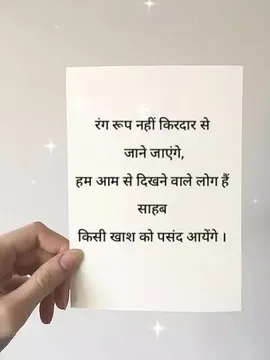 रंग रूप नहीं किरदार से
जाने जाएंगे,
हम आम से दिखने वाले लोग हैं
साहब
किसी खाश को पसंद आयेंगे ।